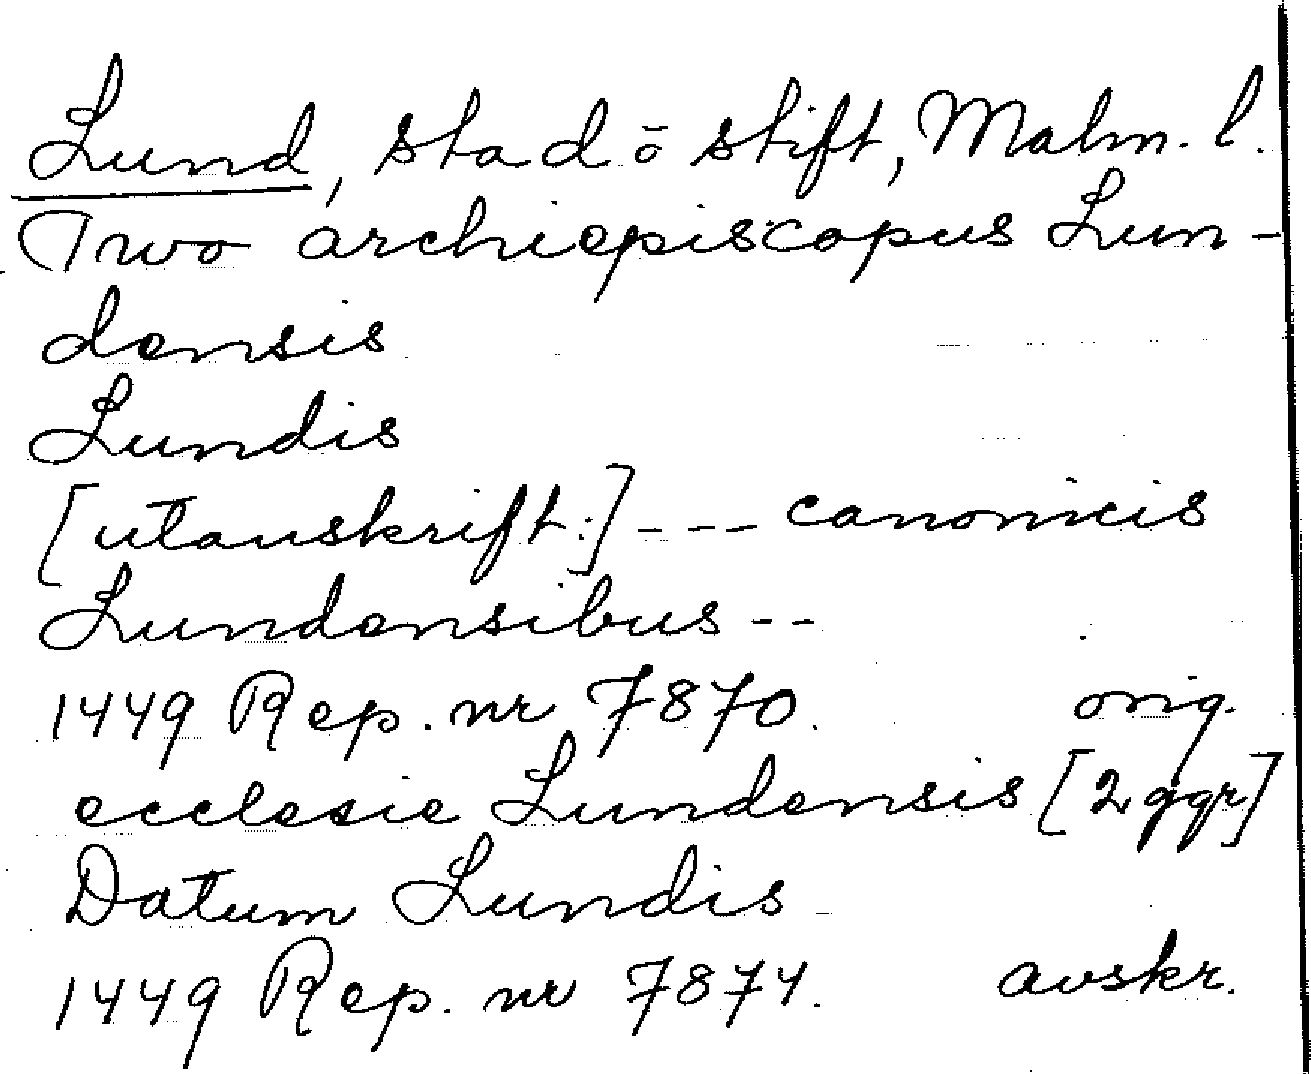 Lund, stad ō stift, Malm. l.
Twο archiepiscopus Lun-
densis
Lundis
[utanskrift:] --- canonicis
Lundensibus --
1449 Rep. nr 7870. orig.
ecclesie Lundensis [2 ggr]
Datum Lundis
1449 Rep. nr 7874. avskr.